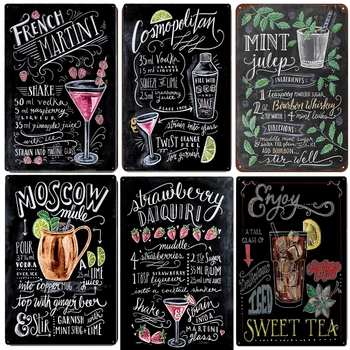 FRENCH
MARTINI
SHAKE
50 ml vodka
35 ml raspberry
LIQUEUR
35 ml pineapple juice
with ice
STRAIN INTO MARTINI GLASS
Cosmopolitan
35 ml vodka
SHAKE
strain into glass
TWIST ORANGE PEEL
for garnish
MINT
julep
INGREDIENTS
1 teaspoon POWDERED SUGAR
2 oz. Bourbon Whiskey
4 mint leaves
DIRECTIONS
ADD BOURBON...
stir well
MOSCOW
mule
POUR
VODKA
OVER ICE
into copper MUG
LIME
juice
top with ginger beer
& Stir
GARNISH with
MINT SPRIG & LIME
strawberry
DAIQUIRI
muddle
4 strawberries
2 tsp Sugar
35 ML RUM
25 ml LIME
JUICE
in a cocktail shaker
Shake
Strain
INTO A
MARTINI
GLASS
Enjoy
A
TALL
GLASS
of
ICED
SWEET TEA